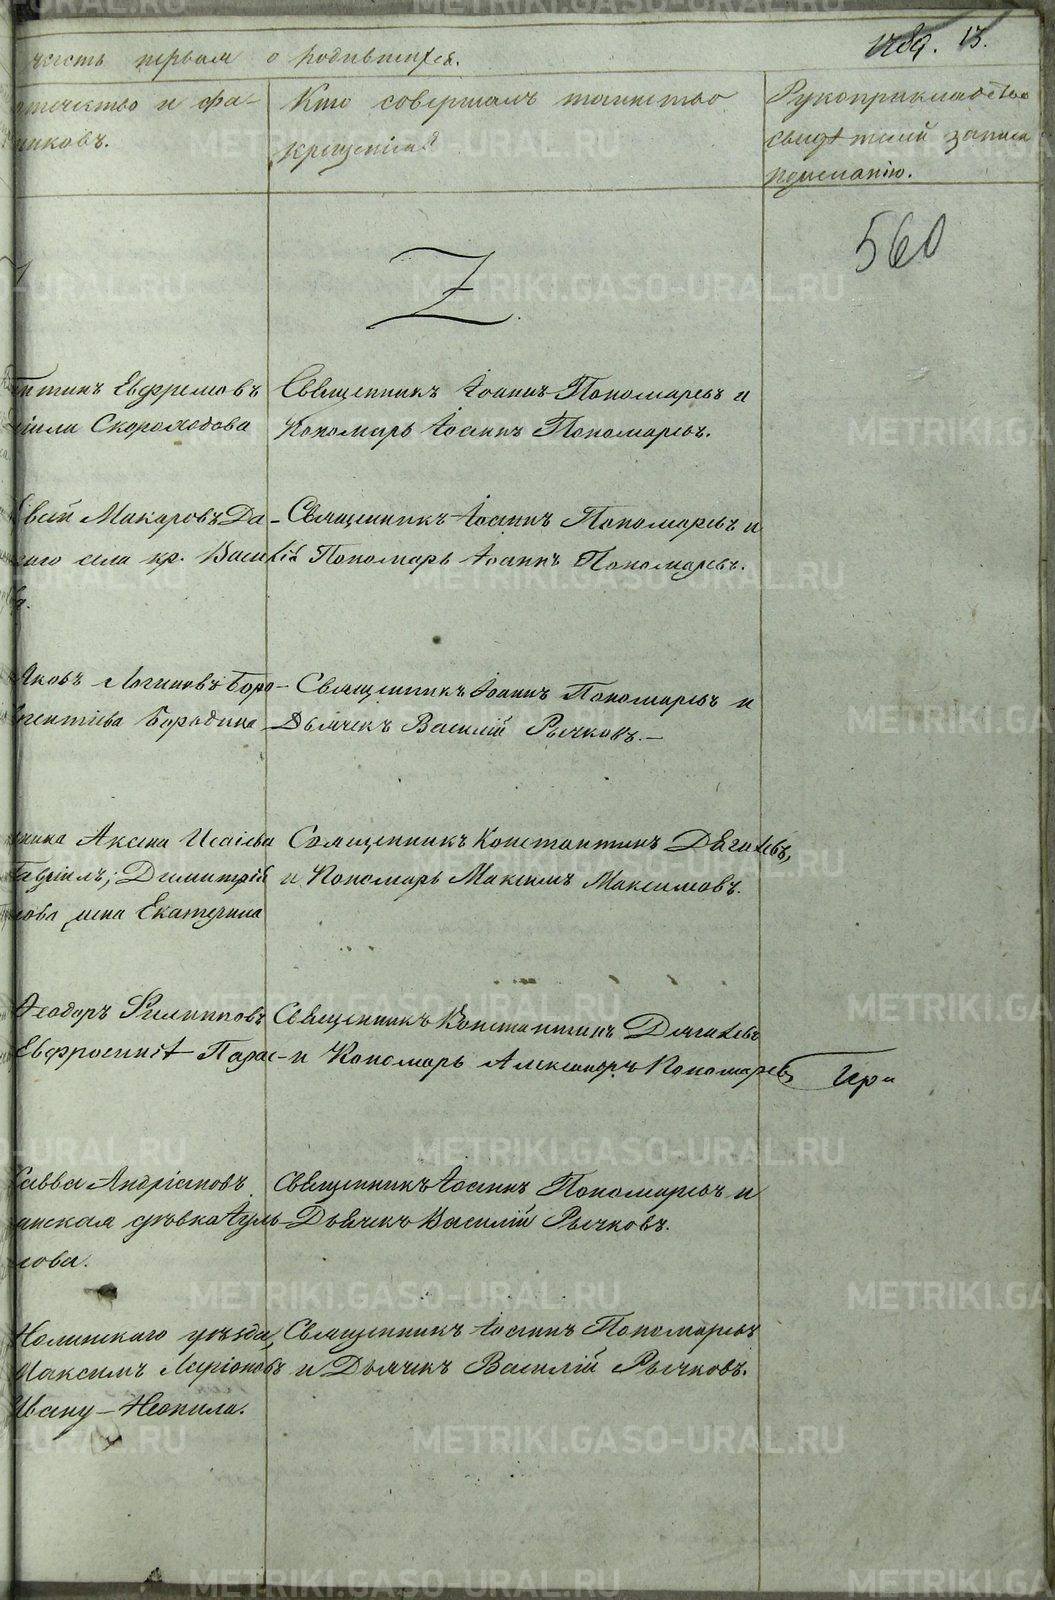 часть первая о родившихся.
отчество и фа-
никовъ.
Кто совершалъ таинство
крещенія?
Рукоприкладство
свидѣтелей записи
по желанію.
13.
560
Евфремовъ
Скороходова
Священникъ Іоаннъ Пономаревъ и
Пономарь Іоаннъ Пономаревъ.
Макаровъ Да-
села кр. Василій
Священникъ Іоаннъ Пономаревъ и
Пономарь Іоаннъ Пономаревъ.
Яковъ Логиновъ Боро-
Бородина
Священникъ Іоаннъ Пономаревъ и
Дьячекъ Василій Рычковъ.—
Аксена Исаіева
Гавріилъ; Димитрій
жена Екатерина
Священникъ Константинъ Дягилевъ,
и Пономарь Максимъ Максимовъ.
Ѳеодоръ Филипповъ
Евфросинія Парас-
Священникъ Константинъ Дягилевъ
и Пономарь Александръ Пономаревъ
При
Савва Андріановъ
дѣвка Іуль-
Священникъ Іоаннъ Пономаревъ и
Дьячекъ Василій Рычковъ.
нова.
Нолинскаго уѣзда,
Максимъ Ларіоновъ
Ивану — Неонила.
Священникъ Іоаннъ Пономаревъ
и Дьячекъ Василій Рычковъ.
METRIKI.GASO-URAL.RU